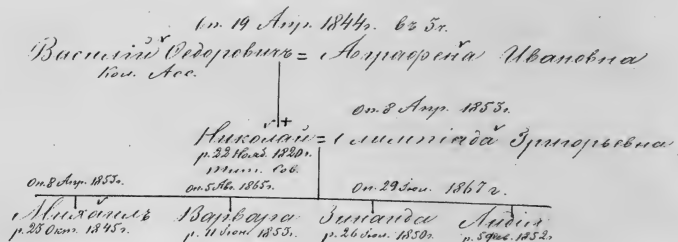 Оп. 19 Апр. 1844 г. въ 5 г.
Василій Ѳедоровичъ = Аграфена Ивановна
Кол. Асс.
Оп. 8 Апр. 1853 г.
Николай = Олимпіада Григорьевна
р. 22 Нояб. 1820 г.
Тит. Сов.
Оп. 8 Апр. 1853 г. Оп. 5 Авг. 1865 г. Оп. 29 Іюл. 1867 г.
Михаилъ Варвара Зинаида Лидія
р. 25 Окт. 1845 г. р. 11 1855 г. р. 26 Іюл. 1850 г. р. 5 Фев. 1852 г.